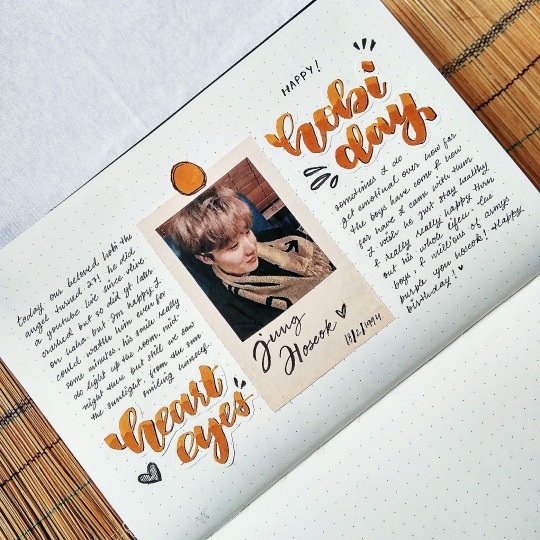 HAPPY!
hobi
day,
today, our beloved hobi the
angel turned 27! he did
a youtube live since vlive
crashed but so did yt later
on haha but I'm happy I
could watch him even for
some minutes. his smile really
do light up the room, mid-
night there but still we saw
the sunlight from the sun
smiling himself.
heart
eyes
Jung
Hoseok
18/2/1994
sometimes I do
get emotional over how far
the boys have come & how
far have I came with them
I wish he just stay healthy
& really really happy thru
out his whole life. luv
boys, & millions of armys
purple you hoseok! Happy
birthday!